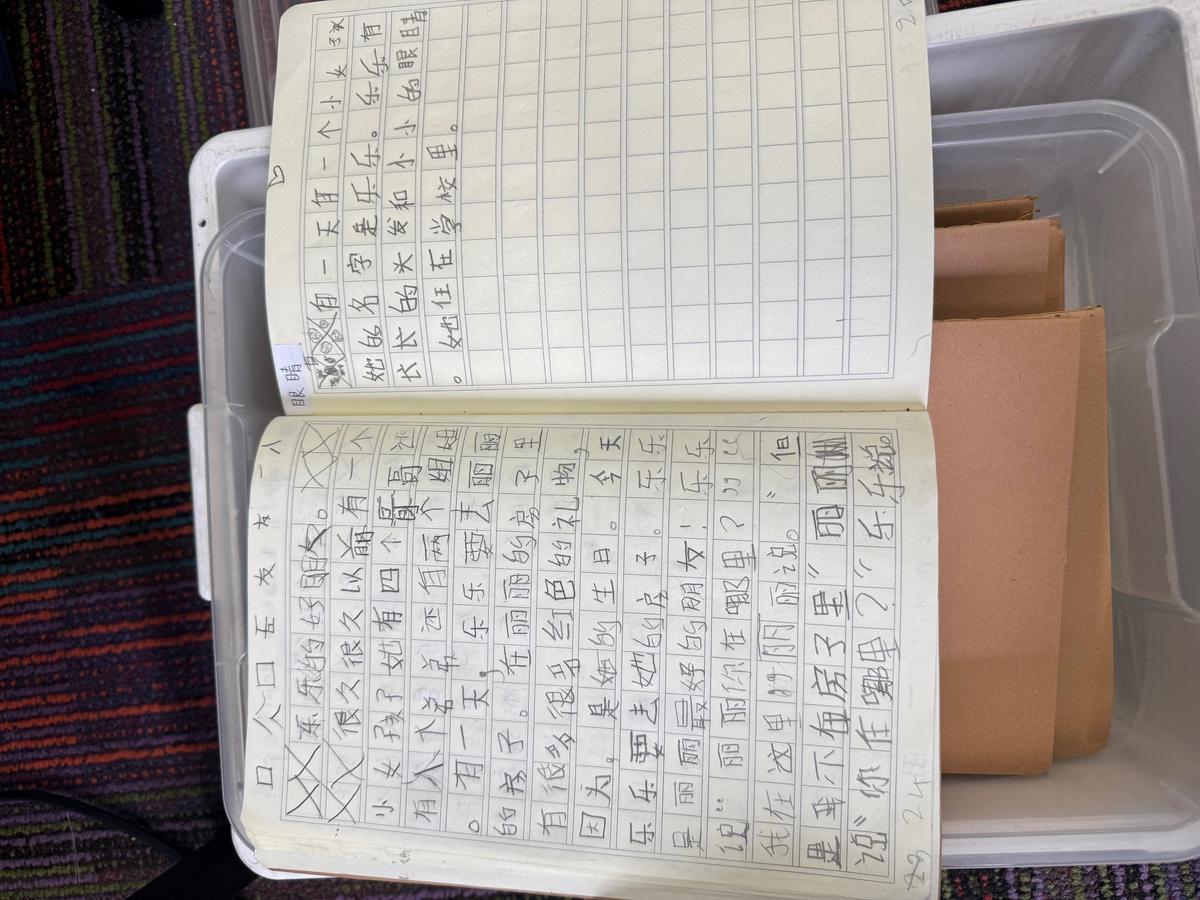 乐乐的好朋友。
很久很久以前有一个
小女孩子她有四个哥哥还
有八个弟弟还有两个姐姐
。有一天，乐乐要去丽丽
的房子。在丽丽的房子里
有很多很多红色的礼物，
因为，是她的生日。今天
乐乐要去她的房子。乐乐
是丽丽最好的朋友！乐乐
说“丽丽你在哪里？”“
我在这里 丽丽说。”但
是我不在房子里”丽丽
说”你在哪里？“乐乐说。
眼睛
有一天有一个小女孩
她的名字是乐乐。乐乐有
长长的头发和小小的眼睛
。她住在学校里。